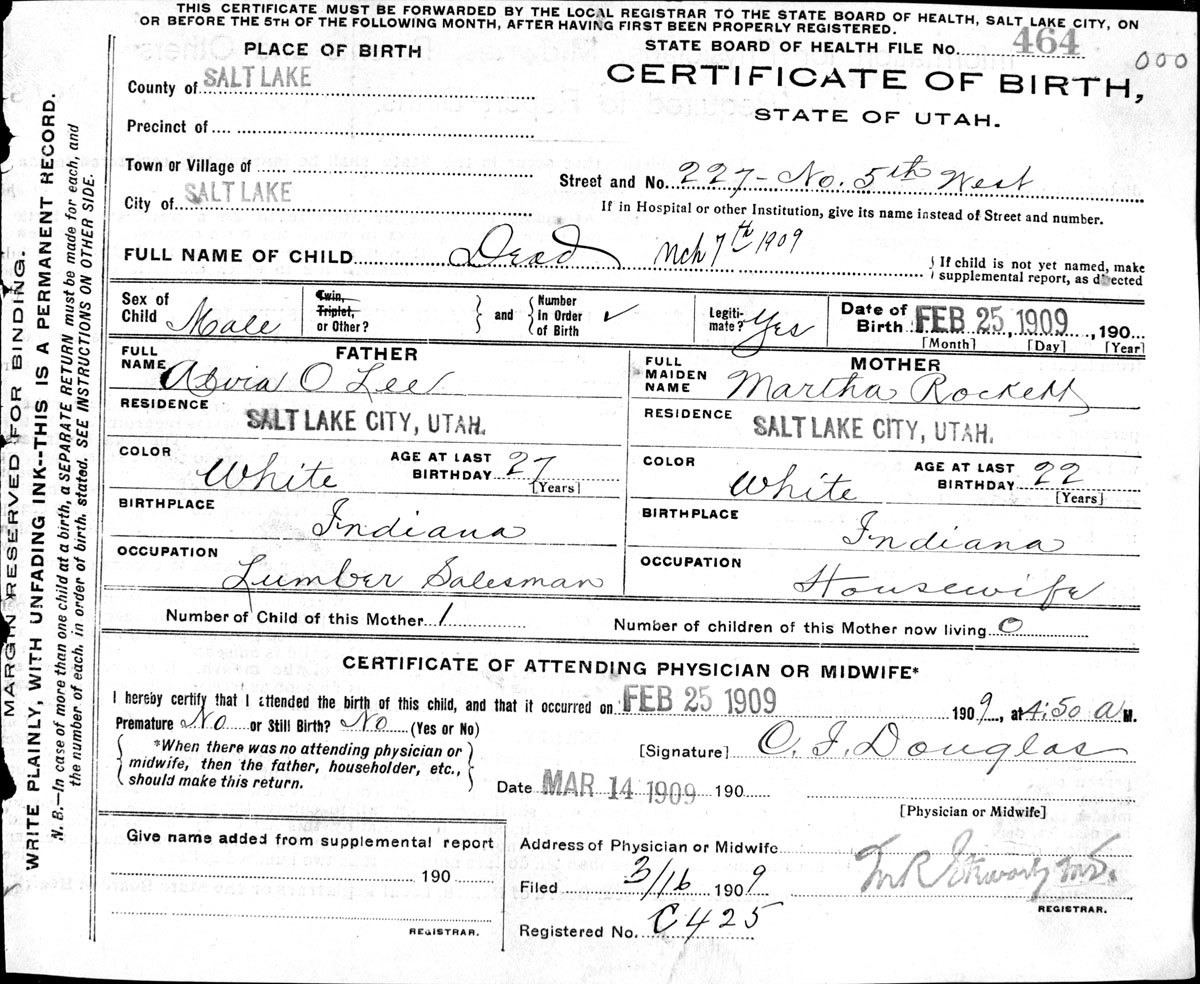 THIS CERTIFICATE MUST BE FORWARDED BY THE LOCAL REGISTRAR TO THE STATE BOARD OF HEALTH, SALT LAKE CITY, ON
OR BEFORE THE 5TH OF THE FOLLOWING MONTH, AFTER HAVING FIRST BEEN PROPERLY REGISTERED.
PLACE OF BIRTH
STATE BOARD OF HEALTH FILE No. 464
000
County of SALT LAKE
CERTIFICATE OF BIRTH,
STATE OF UTAH.
Precinct of
Town or Village of
Street and No. 227 - No. 5th West
City of SALT LAKE
If in Hospital or other Institution, give its name instead of Street and number.
FULL NAME OF CHILD Dead Mch 7th 1909
If child is not yet named, make
supplemental report, as directed
Sex of Child Male
Twin, Triplet, or Other?
and
Number in Order of Birth ✓
Legitimate? Yes
Date of Birth FEB 25, 1909, 190
[Month] [Day] [Year]
FATHER
FULL NAME O Lee
RESIDENCE
SALT LAKE CITY, UTAH.
COLOR White
AGE AT LAST BIRTHDAY 27
[Years]
BIRTHPLACE
Indiana
OCCUPATION
Lumber Salesman
MOTHER
FULL MAIDEN NAME Martha Rockett
RESIDENCE
SALT LAKE CITY, UTAH.
COLOR White
AGE AT LAST BIRTHDAY 22
[Years]
BIRTHPLACE
Indiana
OCCUPATION
Housewife
Number of Child of this Mother 1
Number of children of this Mother now living 0
CERTIFICATE OF ATTENDING PHYSICIAN OR MIDWIFE*
I hereby certify that I attended the birth of this child, and that it occurred on FEB 25 1909 1909, at 4:50 a M.
Premature No or Still Birth? No (Yes or No)
*When there was no attending physician or
midwife, then the father, householder, etc.,
should make this return.
[Signature] C. F. Douglas
Date MAR 14 1909 190
[Physician or Midwife]
Give name added from supplemental report
190
REGISTRAR.
Address of Physician or Midwife
Filed 3/16 1909
REGISTRAR.
Registered No. C425
MARGIN RESERVED FOR BINDING.
WRITE PLAINLY, WITH UNFADING INK--THIS IS A PERMANENT RECORD.
N. B.—In case of more than one child at a birth, a SEPARATE RETURN must be made for each, and
the number of each, in order of birth, stated. SEE INSTRUCTIONS ON OTHER SIDE.